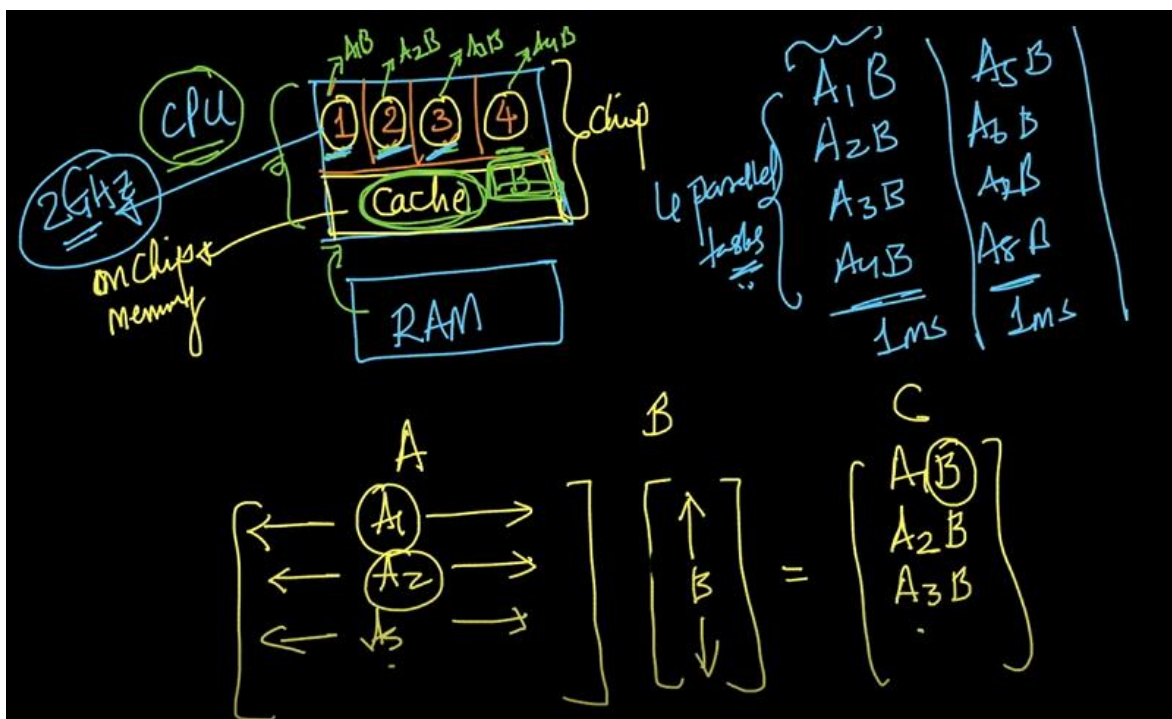 A1B A2B A3B A4B
CPU
1 2 3 4
chip
2GHz
Cache B
on chip
memory
RAM
4 parallel
tasks
A1B
A2B
A3B
A4B
1ms
A5B
A6B
A7B
A8B
1ms
A B C
A1
A2
A3
B
=
A1B
A2B
A3B